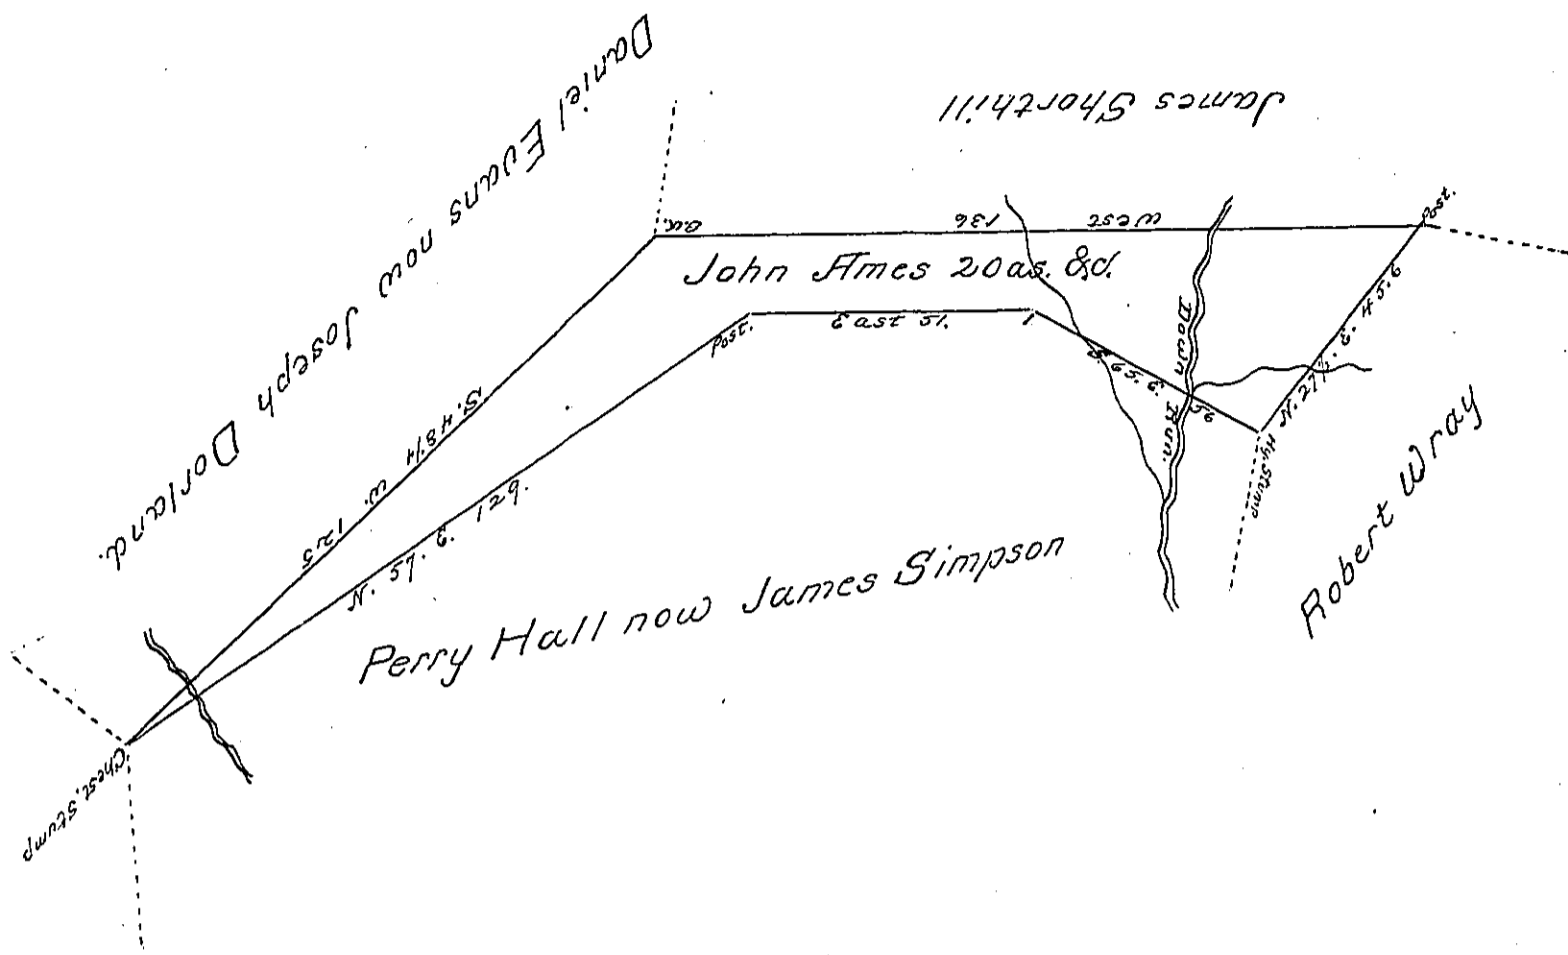 Daniel Evans now Joseph Dorland.
James Shorthill
West 136
Post.
John Ames 20as. &d.
East 51.
Post.
S. 65. E. 56
Down Run.
N. 27½. E. 45.6
Hy. Stump
S. 48¼ W. 125
N. 57. E. 129.
Perry Hall now James Simpson
Robert Wray
Chest. Stump